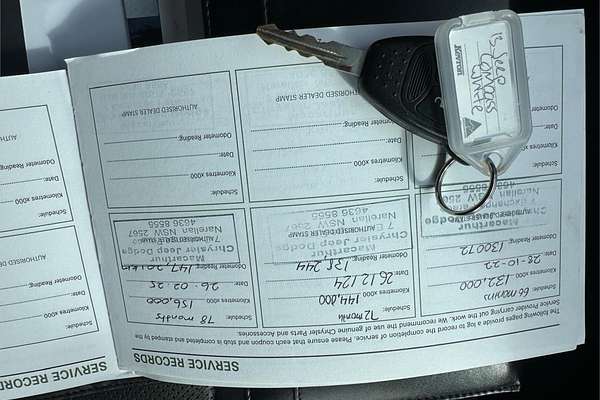 SERVICE RECORDS
The following Service Provider pages provide a log to record the completion of service. Please ensure that each coupon and stub is completed and stamped by the
Service Provider carrying out the work. We recommend the use of genuine Chrysler Parts and Accessories
66 months
132,000
28-10-22
130072
Macarthur
Narellan NSW 2567
4636 8555
Schedule: 72 months
Kilometres x000 144,000
Date: 26.12.124
Odometer Reading: 135,244
AUTHORISED DEALER STAMP
Macarthur
Chrysler Jeep Dodge
Narellan NSW 2567
4636 8555
Schedule: 78 months
Kilometres x000 156,000
Date: 26.02.25
Odometer Reading:
AUTHORISED DEALER STAMP
Macarthur
Chrysler Jeep Dodge
Narellan NSW 2567
4636 8555
Schedule:
Kilometres x000
Date:
Schedule:
Kilometres x000
Date:
Odometer Reading:
AUTHORISED DEALER STAMP
Schedule:
Kilometres x000
Date:
Odometer Reading:
AUTHORISED DEALER STAMP
SERVICE RECORDS
Schedule:
Kilometres x000
Date:
Odometer Reading:
Schedule:
Kilometres x000
Date:
Odometer Reading:
Kevron
JEEP
COMPASS
WHITE